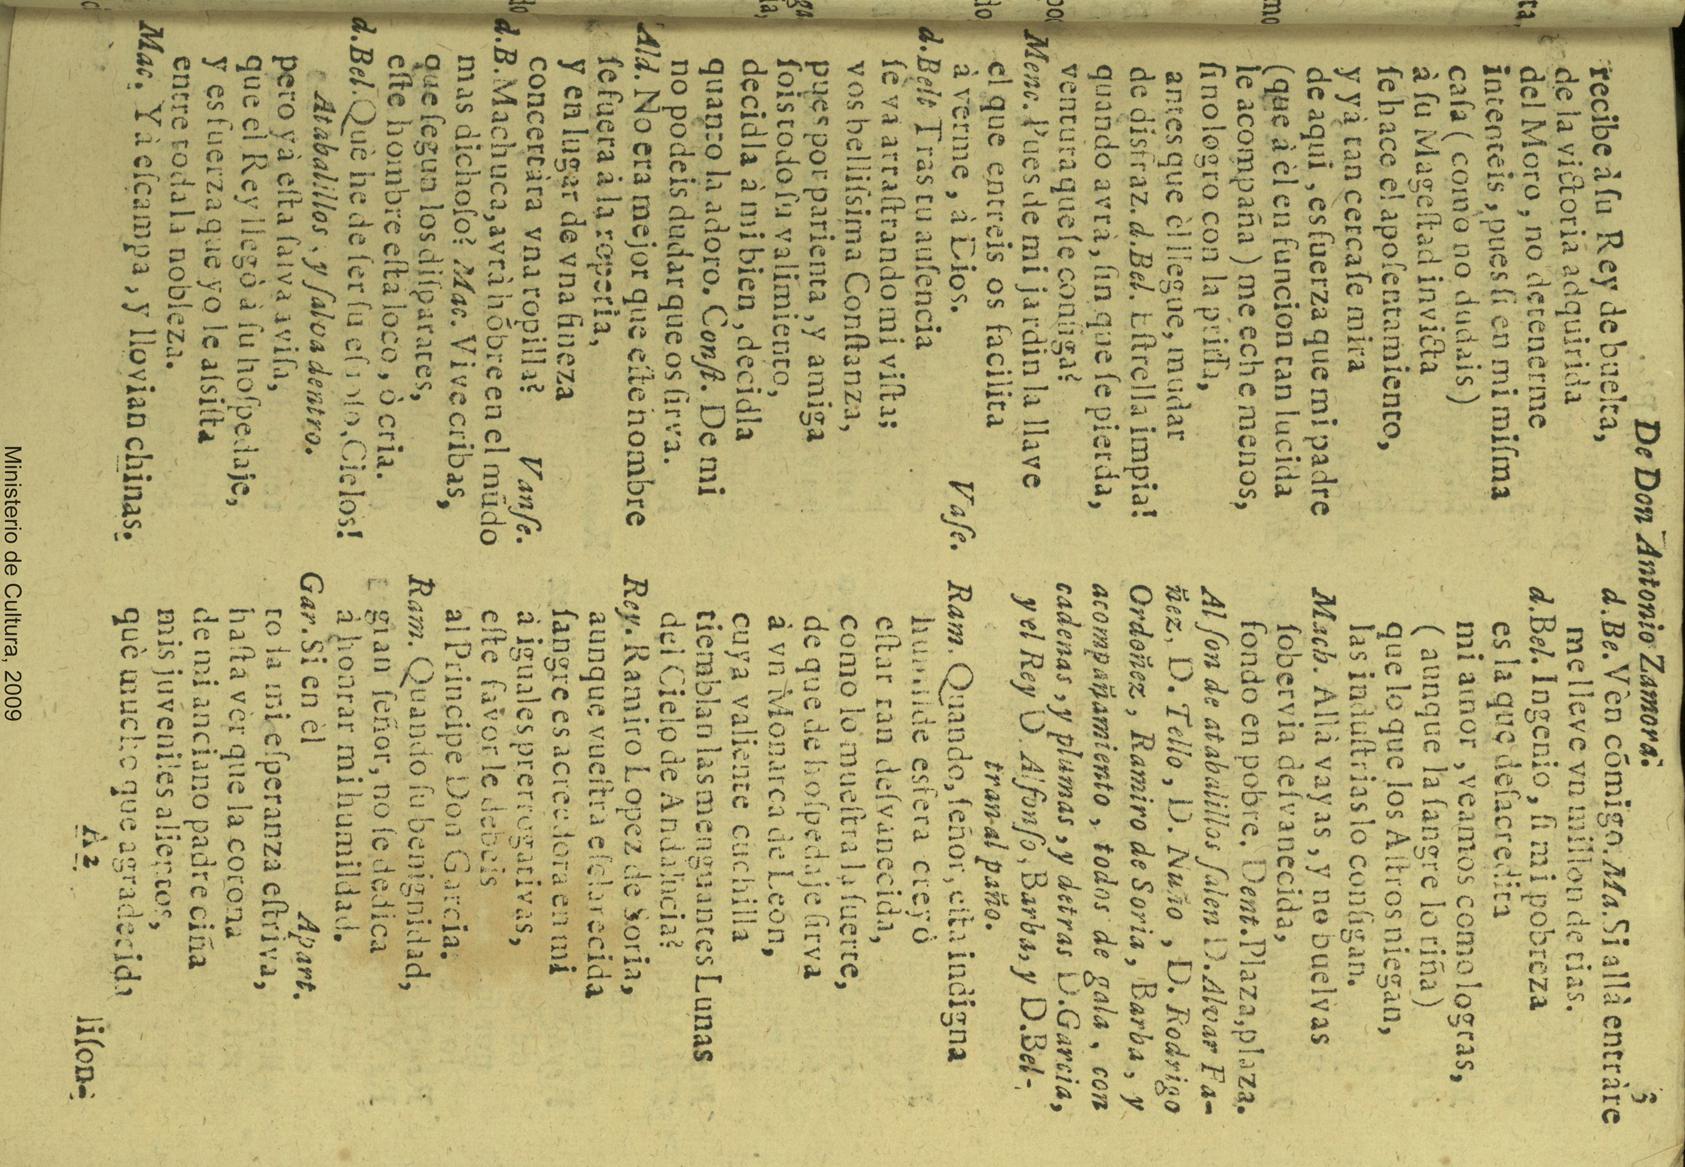 De Don Antonio Zamora. 3
recibe à ſu Rey de buelta,
de la victoria adquirida
del Moro, no detenerme
intenteis, pues ſi en mi miſma
caſa (como no dudais)
à ſu Mageſtad invicta
ſe hace el apoſentamiento,
y yà tan cerca ſe mira
de aqui, es fuerza que mi padre
(que à èl en funcion tan lucida
le acompaña) me eche menos,
ſi no logro con la priſa,
antes que èl llegue, mudar
de disfraz. d.Bel. Eſtrella impia!
quando avrà, ſin que ſe pierda,
ventura que ſe conſiga?
Menc. Pues de mi jardin la llave
el que entreis os facilita
à verme, à Dios. Vaſe.
d.Belt. Tras tu auſencia
ſe và arraſtrando mi viſta;
vos belliſsima Conſtanza,
pues por parienta, y amiga
ſois todo ſu valimiento,
decidla à mi bien, decidla
quanto la adoro. Conſt. De mi
no podeis dudar que os ſirva.
Ald. No era mejor que eſte hombre
ſe fuera à la roperia,
y en lugar de vna fineza
concertàra vna ropilla? Vanſe.
d.B. Machuca, avrà hõbre en el mũdo
mas dichoſo? Mac. Vive cribas,
que ſegun los diſparates,
eſte hombre eſta loco, ò cria.
d.Bel. Què he de ſer ſu eſpoſo, Cielos!
Atabalillos, y ſalva dentro.
pero yà eſta ſalva aviſa,
que el Rey llegò à ſu hoſpedaje,
y es fuerza que yo le aſsiſta
entre toda la nobleza.
Mac. Yà eſcampa, y llovian chinas.
d.Be. Vèn cõmigo. Ma. Si allà entràre
me lleve vn millon de tias.
d.Bel. Ingenio, ſi mi pobreza
es la que deſacredita
mi amor, veamos como logras,
(aunque la ſangre lo riña)
que lo que los Aſtros niegan,
las induſtrias lo conſigan.
Mach. Allà vayas, y no buelvas
ſobervia deſvanecida,
fondo en pobre. Dent. Plaza, plaza.
Al ſon de atabalillos ſalen D. Alvar Fa-
ñez, D. Tello, D. Nuño, D. Rodrigo
Ordoñez, Ramiro de Soria, Barba, y
acompañamiento, todos de gala, con
cadenas, y plumas, y detras D. Garcia,
y el Rey D. Alfonſo, Barba, y D. Bel-
tran al paño.
Ram. Quando, ſeñor, eſta indigna
humilde esfera creyò
eſtar tan deſvanecida,
como lo mueſtra la ſuerte,
de que de hoſpedaje ſirva
à vn Monarca de Leon,
cuya valiente cuchilla
tiemblan las menguantes Lunas
del Cielo de Andalucia?
Rey. Ramiro Lopez de Soria,
aunque vueſtra eſclarecida
ſangre es acredora en mi
à iguales prerrogativas,
eſte favor le debeis
al Principe Don Garcia.
Ram. Quando ſu benignidad,
gran ſeñor, no ſe dedica
à honrar mi humildad.
Gar. Si en èl Apart.
to la mi eſperanza eſtriva,
haſta vèr que la corona
de mi anciano padre ciña
mis juveniles alientos,
què mucho que agradecida
A 2 liſon-
Ministerio de Cultura, 2009